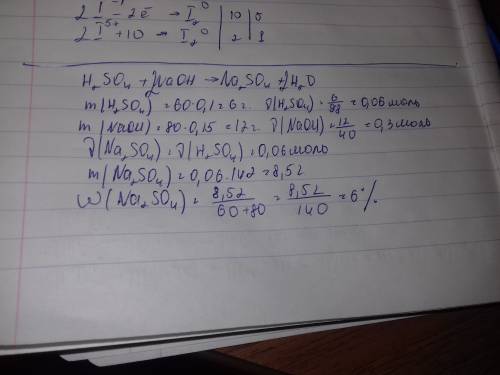 2 I⁻¹ - 2ē → I₂⁰ | 10 | 5
2 I⁺⁵ + 10 → I₂⁰ | 2 | 1
H₂SO₄ + 2NaOH → Na₂SO₄ + 2H₂O
m(H₂SO₄) = 60·0,1 = 6г. ϑ(H₂SO₄) = 6/98 = 0,06 моль
m(NaOH) = 80·0,15 = 12г. ϑ(NaOH) = 12/40 = 0,3 моль
ϑ(Na₂SO₄) = ϑ(H₂SO₄) = 0,06 моль
m(Na₂SO₄) = 0,06·142 = 8,52
W(Na₂SO₄) = 8,52/60+80 = 8,52/140 = 6%